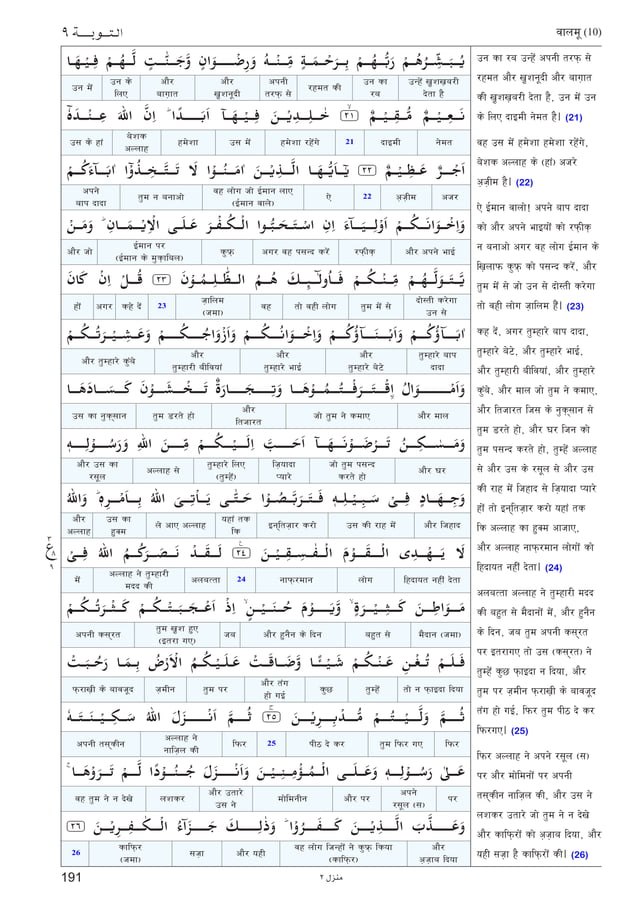 التـوبـة ٩
वालमू (10)
يُبَشِّرُهُمْ رَبُّهُمْ بِرَحْمَةٍ مِّنْهُ وَرِضْوَانٍ وَّجَنّٰتٍ لَّهُمْ فِيْهَا
उन में | उन के लिए | और बाग़ात | और खुशनूदी | अपनी तरफ़ से | रहमत की | उन का रब | उन्हें खुशख़बरी देता है
نَعِيْمٌ مُّقِيْمٌ ﴿٢١﴾ خٰلِدِيْنَ فِيْهَآ اَبَدًا ؕ اِنَّ اللهَ عِنْدَهٗٓ
उस के हां | बेशक अल्लाह | हमेशा | उस में | हमेशा रहेंगे | 21 | दाइमी | नेमत
اَجْرٌ عَظِيْمٌ ﴿٢٢﴾ يٰٓاَيُّهَا الَّذِيْنَ اٰمَنُوْا لَا تَتَّخِذُوْٓا اٰبَآءَكُمْ
अपने बाप दादा | तुम न बनाओ | वह लोग जो ईमान लाए (ईमान वाले) | ऐ | 22 | अज़ीम | अजर
وَاِخْوَانَكُمْ اَوْلِيَآءَ اِنِ اسْتَحَبُّوا الْكُفْرَ عَلَى الْاِيْمَانِ ؕ وَمَنْ
और जो | ईमान पर (ईमान के मुक़ाबिल) | कुफ़्र | अगर वह पसन्द करें | रफ़ीक़ | और अपने भाई
يَّتَوَلَّهُمْ مِّنْكُمْ فَاُولٰٓئِكَ هُمُ الظّٰلِمُوْنَ ﴿٢٣﴾ قُلْ اِنْ كَانَ
हों | अगर | कहे दें | 23 | ज़ालिम (जमा) | वह | तो वही लोग | तुम में से | दोस्ती करेगा उन से
اٰبَآؤُكُمْ وَاَبْنَآؤُكُمْ وَاِخْوَانُكُمْ وَاَزْوَاجُكُمْ وَعَشِيْرَتُكُمْ
और तुम्हारे कुंबे | और तुम्हारी बीवियां | और तुम्हारे भाई | और तुम्हारे बेटे | तुम्हारे बाप दादा
وَاَمْوَالُ ِۨاقْتَرَفْتُمُوْهَا وَتِجَارَةٌ تَخْشَوْنَ كَسَادَهَا
उस का नुक़सान | तुम डरते हो | और तिजारत | जो तुम ने कमाए | और माल
وَمَسٰكِنُ تَرْضَوْنَهَآ اَحَبَّ اِلَيْكُمْ مِّنَ اللهِ وَرَسُوْلِهٖ
और उस का रसूल | अल्लाह से | तुम्हारे लिए (तुम्हें) | ज़ियादा प्यारे | जो तुम पसन्द करते हो | और घर
وَجِهَادٍ فِيْ سَبِيْلِهٖ فَتَرَبَّصُوْا حَتّٰى يَأْتِيَ اللهُ بِاَمْرِهٖ ؕ وَاللهُ
और अल्लाह | उस का हुक्म | ले आए अल्लाह | यहां तक कि | इनतिज़ार करो | उस की राह में | और जिहाद
لَا يَهْدِى الْقَوْمَ الْفٰسِقِيْنَ ﴿٢٤﴾ لَقَدْ نَصَرَكُمُ اللهُ فِيْ
में | अल्लाह ने तुम्हारी मदद की | अलबत्ता | 24 | नाफ़रमान | लोग | हिदायत नहीं देता
مَوَاطِنَ كَثِيْرَةٍ ۙ وَّيَوْمَ حُنَيْنٍ ۙ اِذْ اَعْجَبَتْكُمْ كَثْرَتُكُمْ
अपनी कसरत | तुम खुश हुए (इतरा गए) | जब | और हुनैन के दिन | बहुत से | मैदान (जमा)
فَلَمْ تُغْنِ عَنْكُمْ شَيْئًا وَّضَاقَتْ عَلَيْكُمُ الْاَرْضُ بِمَا رَحُبَتْ
फ़राख़ी के बावजूद | ज़मीन | तुम पर | और तंग हो गई | कुछ | तुम्हें | तो न फ़ाइदा दिया
ثُمَّ وَلَّيْتُمْ مُّدْبِرِيْنَ ﴿٢٥﴾ ثُمَّ اَنْزَلَ اللهُ سَكِيْنَتَهٗ
अपनी तस्कीन | अल्लाह ने नाज़िल की | फिर | 25 | पीठ दे कर | तुम फिर गए | फिर
عَلٰى رَسُوْلِهٖ وَعَلَى الْمُؤْمِنِيْنَ وَاَنْزَلَ جُنُوْدًا لَّمْ تَرَوْهَا ۚ
वह तुम ने न देखे | लशकर | और उतारे उस ने | मोमिनीन | और पर | अपने रसूल (स) | पर
وَعَذَّبَ الَّذِيْنَ كَفَرُوْا ؕ وَذٰلِكَ جَزَآءُ الْكٰفِرِيْنَ ﴿٢٦﴾
26 | काफ़िर (जमा) | सज़ा | और यही | वह लोग जिन्हों ने कुफ़्र किया (काफ़िर) | और अज़ाब दिया
उन का रब उन्हें अपनी तरफ़ से
रहमत और खुशनूदी और बाग़ात
की खुशख़बरी देता है, उन में उन
के लिए दाइमी नेमत है। (21)
वह उस में हमेशा हमेशा रहेंगे,
बेशक अल्लाह के (हां) अजरे
अज़ीम है। (22)
ऐ ईमान वालो! अपने बाप दादा
को और अपने भाइयों को रफ़ीक़
न बनाओ अगर वह लोग ईमान के
ख़िलाफ़ कुफ़्र को पसन्द करें, और
तुम में से जो उन से दोस्ती करेगा
तो वही लोग ज़ालिम हैं। (23)
कह दें, अगर तुम्हारे बाप दादा,
तुम्हारे बेटे, और तुम्हारे भाई,
और तुम्हारी बीवियां, और तुम्हारे
कुंबे, और माल जो तुम ने कमाए,
और तिजारत जिस के नुक़सान से
तुम डरते हो, और घर जिन को
तुम पसन्द करते हो, तुम्हें अल्लाह
से और उस के रसूल से और उस
की राह में जिहाद से ज़ियादा प्यारे
हों तो इनतिज़ार करो यहां तक
कि अल्लाह का हुक्म आजाए,
और अल्लाह नाफ़रमान लोगों को
हिदायत नहीं देता। (24)
अलबत्ता अल्लाह ने तुम्हारी मदद
की बहुत से मैदानों में, और हुनैन
के दिन, जब तुम अपनी कसरत
पर इतरागए तो उस (कसरत) ने
तुम्हें कुछ फ़ाइदा न दिया, और
तुम पर ज़मीन फ़राख़ी के बावजूद
तंग हो गई, फिर तुम पीठ दे कर
फिरगए। (25)
फिर अल्लाह ने अपने रसूल (स)
पर और मोमिनों पर अपनी
तस्कीन नाज़िल की, और उस ने
लशकर उतारे जो तुम ने न देखे
और काफ़िरों को अज़ाब दिया, और
यही सज़ा है काफ़िरों की। (26)
٣
ع
٨
٩
191
منزل ٢